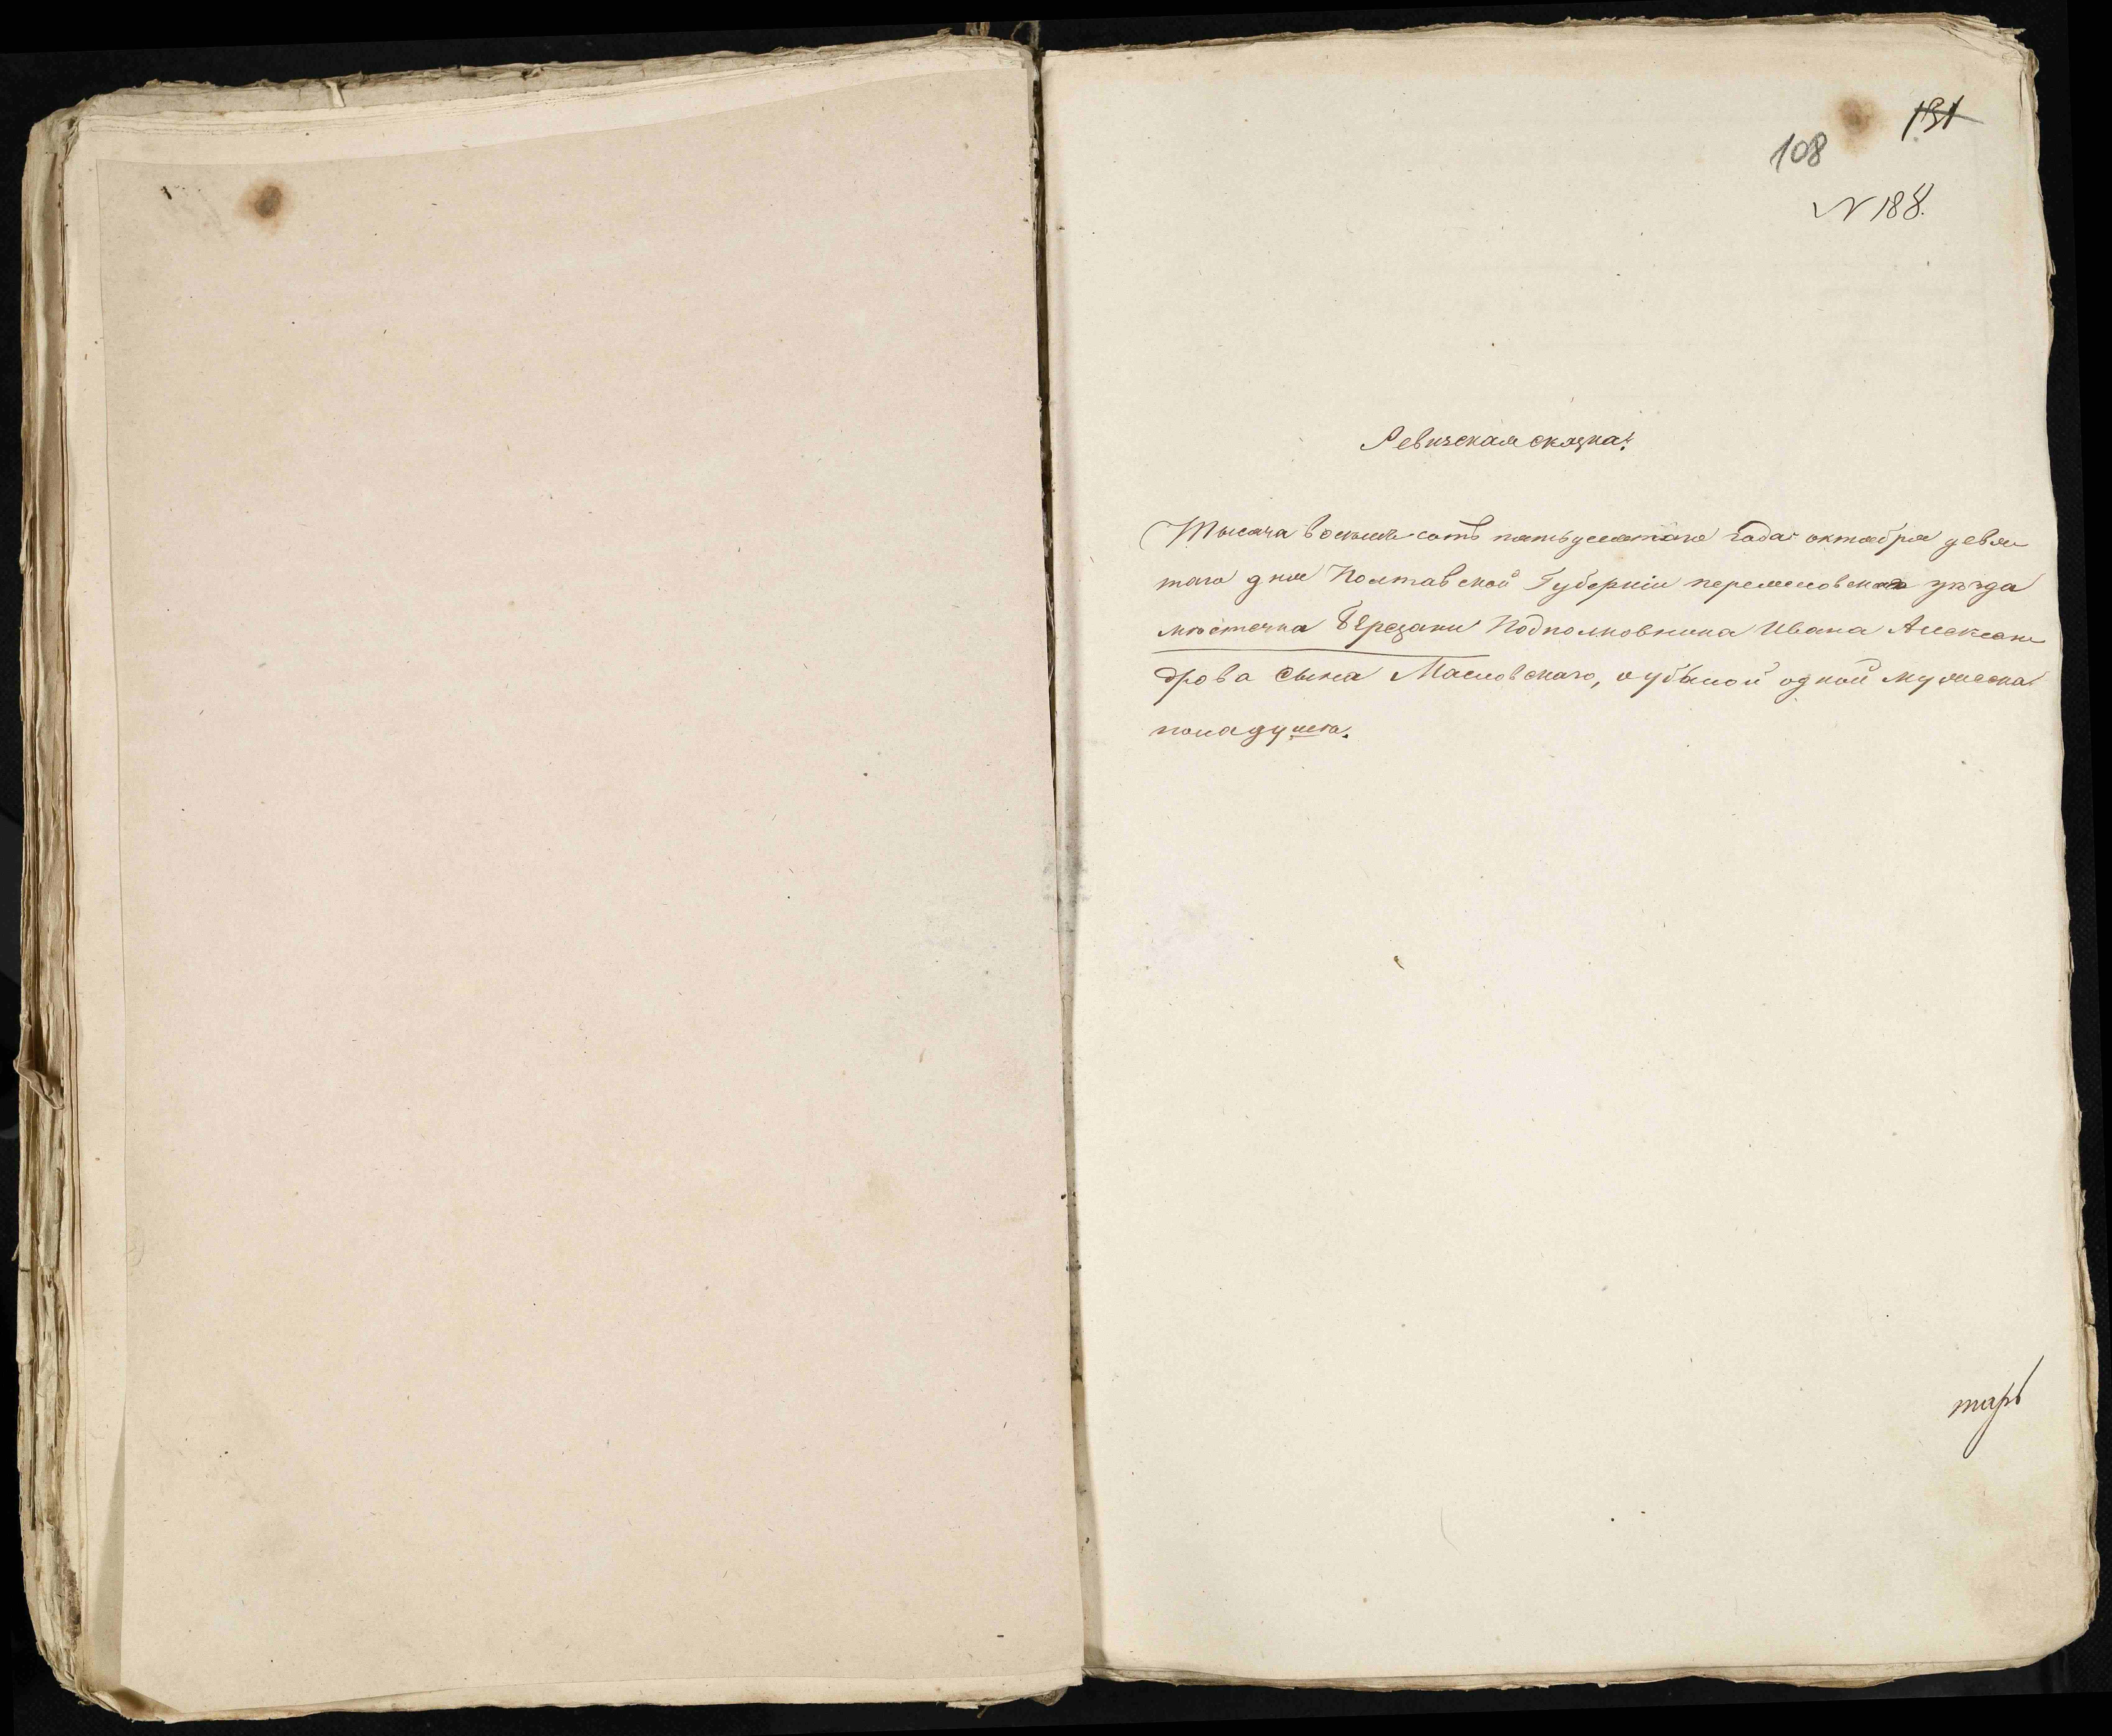 131
108
N 188.
Ревизская сказка.
Тысяча восемь сотъ пятьдесятаго года октября девя
таго дня Полтавской Губерніи переяславскаго уѣзда
мѣстечка Березани Подполковника Ивана Алексан
дрова сына Масловскаго, о убылой одной мужеска
пола душѣ.